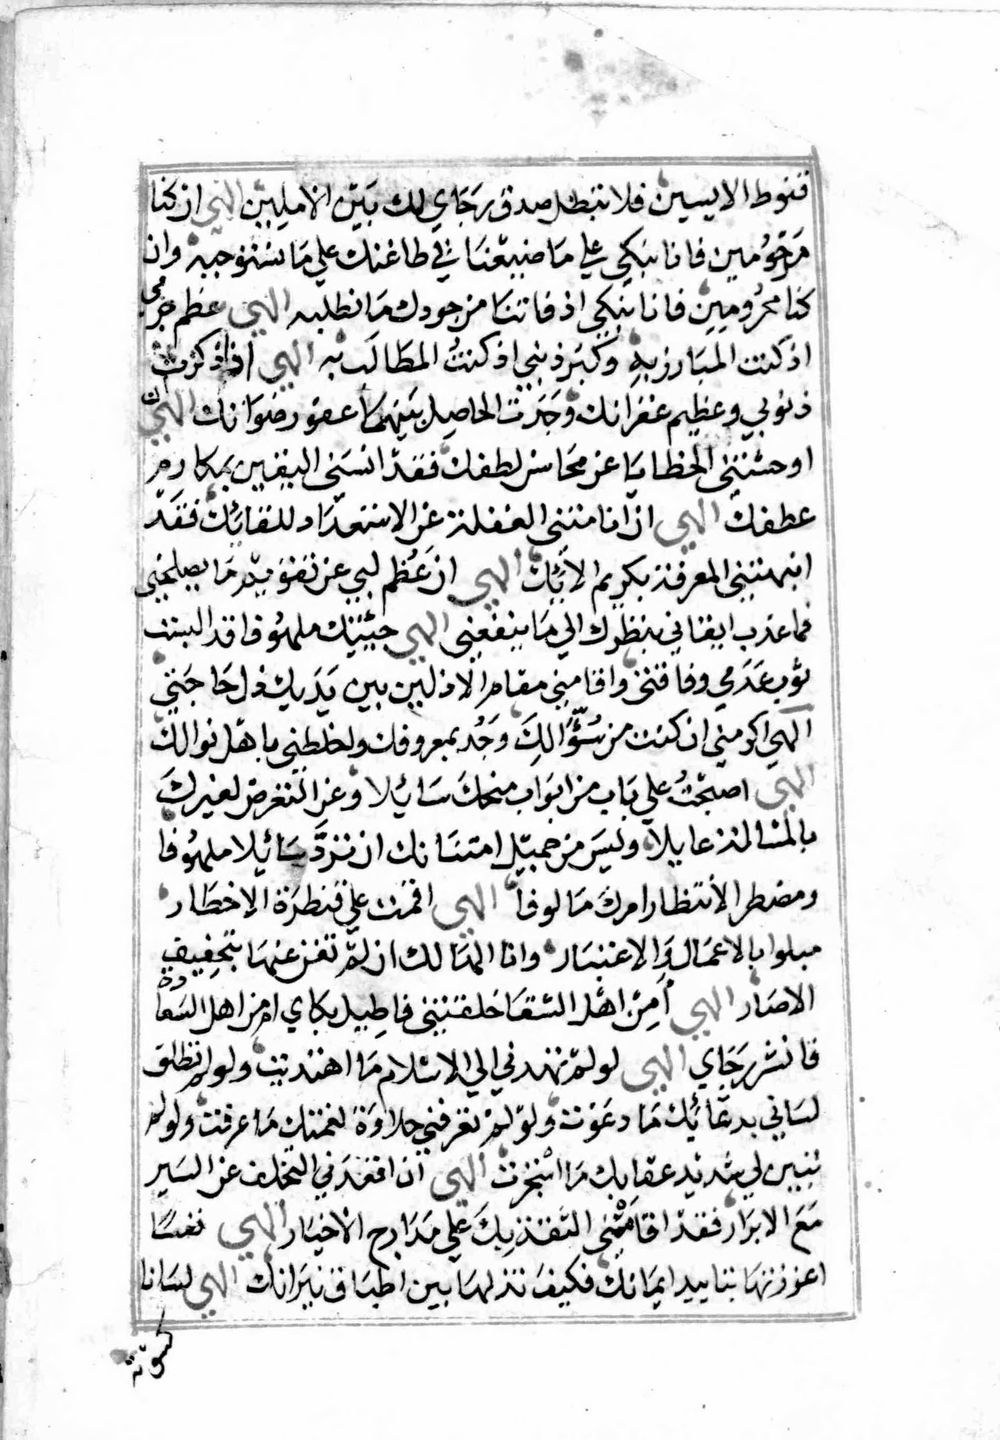 قنوط الايسين فلا تبطل صدق رجاي لك بين الاملين الهي ان كنا
مرحومين فانا نبكي علي ما ضيعنا في طاعتك علي ما تستوجبه وان
كنا محرومين فانا نبكي اذ فاتنا من جودك ما نطلبه الهي عظم جرمي
اذ كنت المبارز به وكبر ذنبي اذ كنت المطالب به الهي اذا ذكرت
ذنوبي وعظيم غفرانك وجدت الحاصل بينهما عفو رضوانك الهي ان
اوحشتني الخطايا عن محاسن لطفك فقد انسني اليقين بمكارم
عطفك الهي ان انامتني الغفلة عن الاستعداد للقائك فقد
انبهتني المعرفة بكريم الائك الهي ان عظم لبي عن تقويم ما يصلحني
فما عذب ايقاني بنظرك الي ما ينفعني الهي جيتك ملهوفا قد البست
ثوب عدمي وفاقتي واقامني مقام الاذلين بين يديك ذل حاجتي
الهي اكرمني ان كنت من سؤالك وجد بمعروفك ولخلطني باهل نوالك
الهي اصبحت علي باب من ابواب منحك سايلا وعن التعرض لغيرك
بالمسالة عايلا وليس من جميل امتنانك ان ترد سايلا ملهوفا
ومضطر الانتظار امرك مالوفا الهي اقمت علي قنطرة الاخطار
مبلوا بالاعمال والاعتبار وانا الهالك ان لم تعن عنها بتخفيف
الاصار الهي أمن اهل الشقا خلقتني فاطيل بكاي ام من اهل السعادة
فانشر رجاي الهي لو لم تهدني الي الاسلام ما اهتديت ولو لم تطلق
لساني بدعائك ما دعوت ولو لم تعرفني حلاوة نعمتك ما عرفت ولو لم
تبين لي شديد عقابك ما استجرت الهي ان اقعدني التخلف عن السير
مع الابرار فقد اقامتني الثقة بك علي مدارج الاخيار الهي نفسا
اعززتها بتاييد ايمانك فكيف تذلها بين اطباق نيرانك الهي لسانا
كسوته